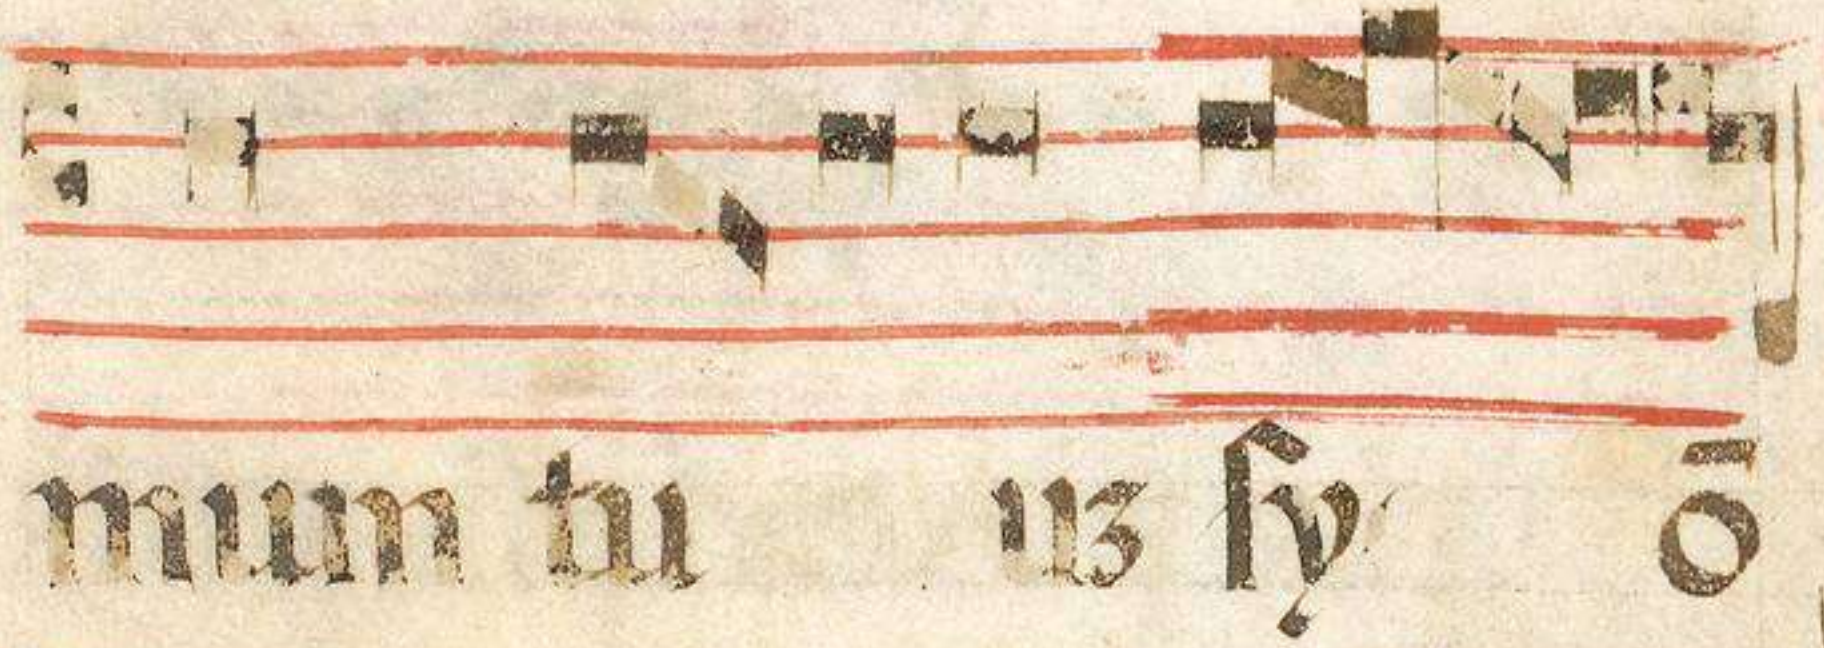 mum tuuʒ ſy ō